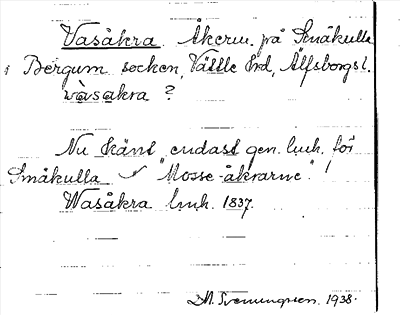 Vasåkra Åkerm. på Småkulla
i Bergum socken, Vättle hrd, Älfsborgs l.
wàsakra ?
Nu känt endast gen. lmh. för
Småkulla "Mosse-åkrarne". !
Wasåkra lmh. 1837.
D.N. Svenningsen. 1938.